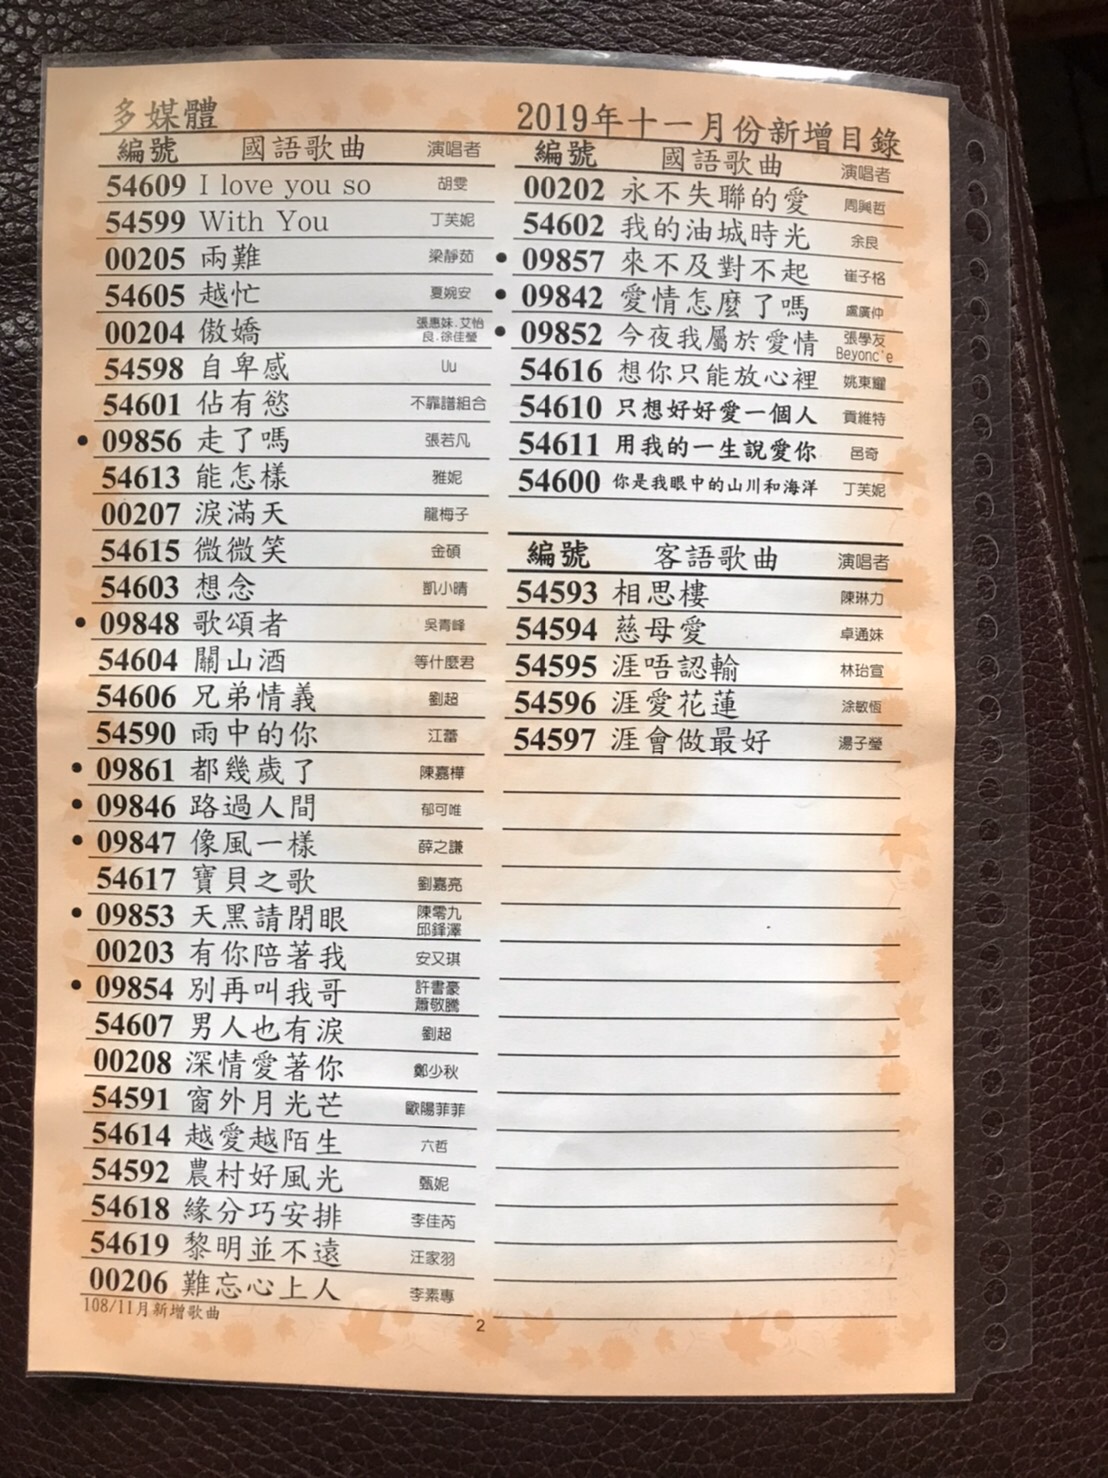 多媒體
2019年十一月份新增目錄
編號 國語歌曲 演唱者
54609 I love you so 胡雯
54599 With You 丁芙妮
00205 兩難 梁靜茹
54605 越忙 夏婉安
00204 傲嬌 張惠妹.艾怡良.徐佳瑩
54598 自卑感 Uu
54601 佔有慾 不靠譜組合
• 09856 走了嗎 張若凡
54613 能怎樣 雅妮
00207 淚滿天 龍梅子
54615 微微笑 金碩
54603 想念 凱小晴
• 09848 歌頌者 吳青峰
54604 關山酒 等什麼君
54606 兄弟情義 劉超
54590 雨中的你 江蕾
• 09861 都幾歲了 陳嘉樺
• 09846 路過人間 郁可唯
• 09847 像風一樣 薛之謙
54617 寶貝之歌 劉嘉亮
• 09853 天黑請閉眼 陳零九 邱鋒澤
00203 有你陪著我 安又琪
• 09854 別再叫我哥 許書豪 蕭敬騰
54607 男人也有淚 劉超
00208 深情愛著你 鄭少秋
54591 窗外月光芒 歐陽菲菲
54614 越愛越陌生 六哲
54592 農村好風光 甄妮
54618 緣分巧安排 李佳芮
54619 黎明並不遠 汪家羽
00206 難忘心上人 李素專
108/11月新增歌曲
編號 國語歌曲 演唱者
00202 永不失聯的愛 周興哲
54602 我的油城時光 余良
• 09857 來不及對不起 崔子格
• 09842 愛情怎麼了嗎 盧廣仲
• 09852 今夜我屬於愛情 張學友 Beyonc'e
54616 想你只能放心裡 姚東耀
54610 只想好好愛一個人 貢維特
54611 用我的一生說愛你 邑奇
54600 你是我眼中的山川和海洋 丁芙妮
編號 客語歌曲 演唱者
54593 相思樓 陳琳力
54594 慈母愛 卓通妹
54595 涯唔認輸 林珆宣
54596 涯愛花蓮 涂敏恆
54597 涯會做最好 湯子瑩
2